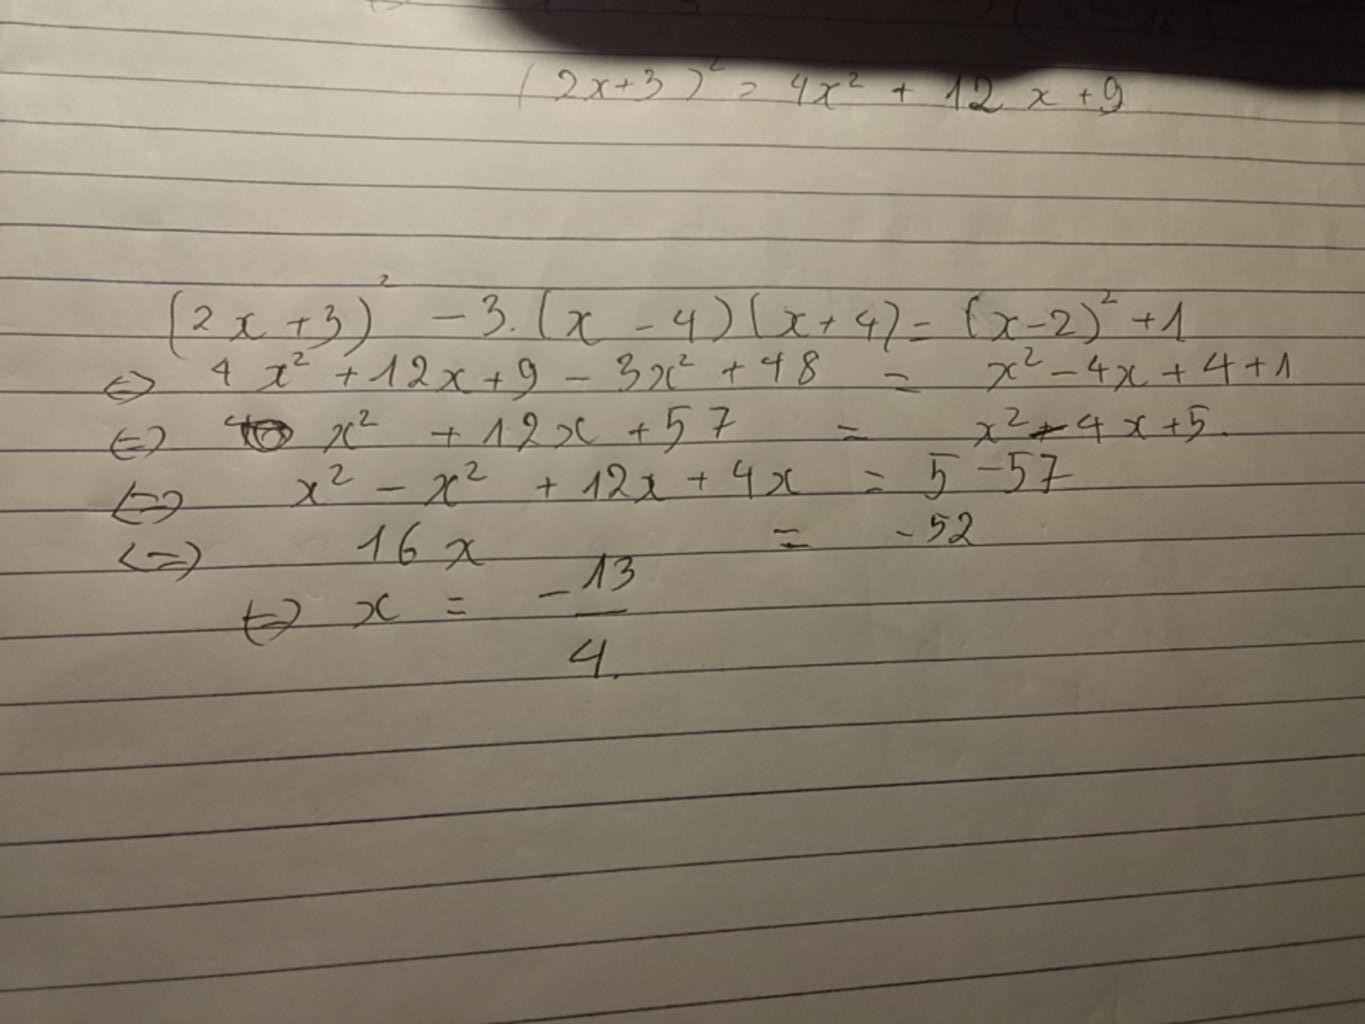 (x²-16)
(2x+3)² = 4x² + 12x+9
(2x+3)² - 3.(x-4)(x+4) = (x-2)² +1
⇔ 4x² +12x+9 - 3x² + 48 = x² - 4x + 4 + 1
⇔ x² + 12x + 57 = x² - 4x + 5.
⇔ x² - x² + 12x + 4x = 5 - 57
⇔ 16x = -52
⇔ x = -13/4.